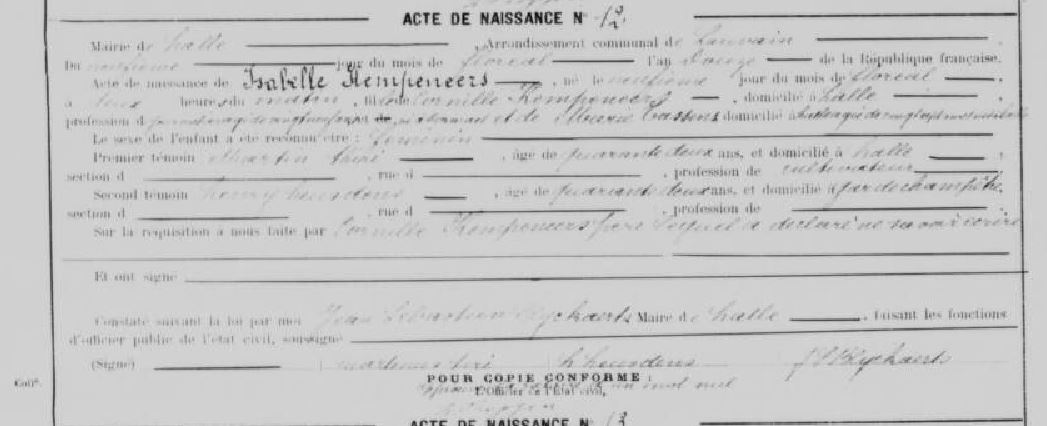 ACTE DE NAISSANCE N° 12
Mairie de halle, Arrondissement communal de Louvain
Du neuvieme jour du mois de floreal l'an Douze de la République française.
Acte de naissance de Isabelle Kempeneers, né le neuvieme jour du mois de floreal,
à deux heures du matin, fille de Cornille Kempeneers, domicilié à halle
profession d et de Marie domicilié à halle
Le sexe de l'enfant a été reconnu être: feminin
Premier témoin Martin, âgé de quarante deux ans, et domicilié à halle,
section d, rue d, profession de cultivateur
Second témoin henry heusdens, âgé de quarante deux ans, et domicilié à garde champêtre
section d, rue d, profession de
Sur la requisition à nous faite par Cornille Kempeneers pere lequel a declaré ne savoir ecrire
Et ont signé
Constaté suivant la loi par moi Jean Sebastien Ryckaerts Maire de halle, faisant les fonctions
d'officier public de l'état civil, soussigné
(Signé) h heusdens J S Ryckaert
Coll°.
POUR COPIE CONFORME :
un mot nul
L'Officier de l'État civil,
ACTE DE NAISSANCE N° 13